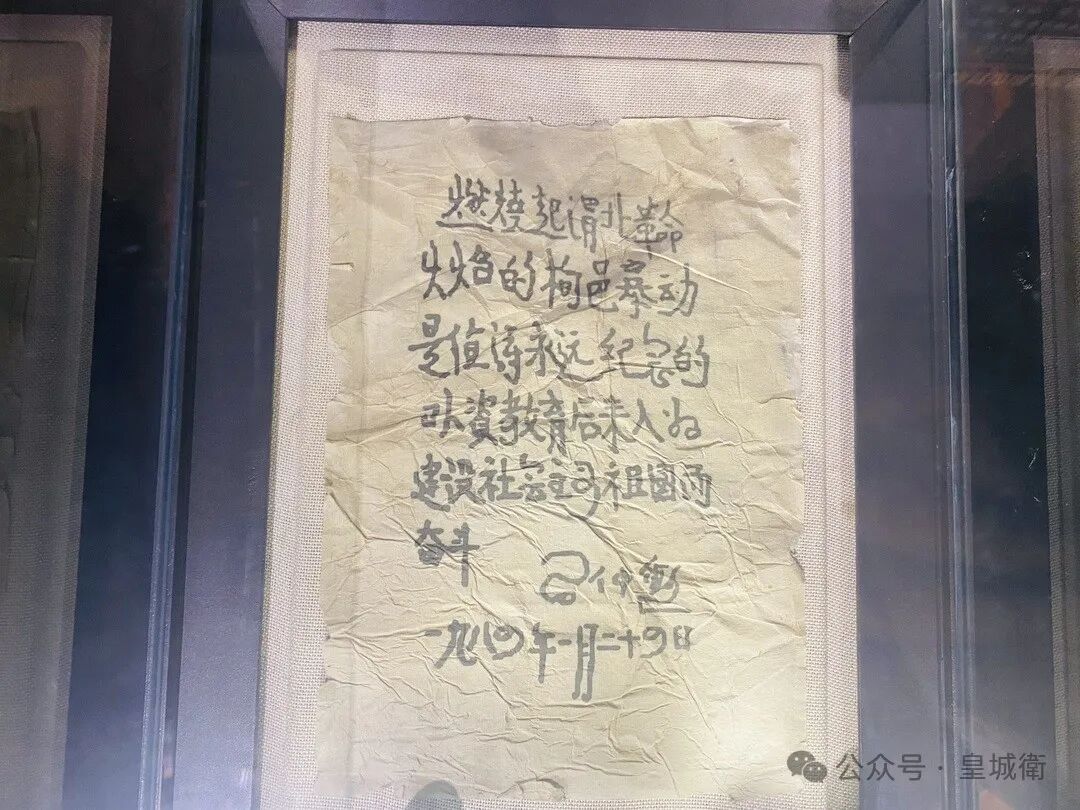 燃烧起渭北革命
火焰的栒邑暴动
是值得永远纪念的
以資教育后来人为
建设社会主义祖國而
奋斗
一九八四年一月二十四日
公众号·皇城衛